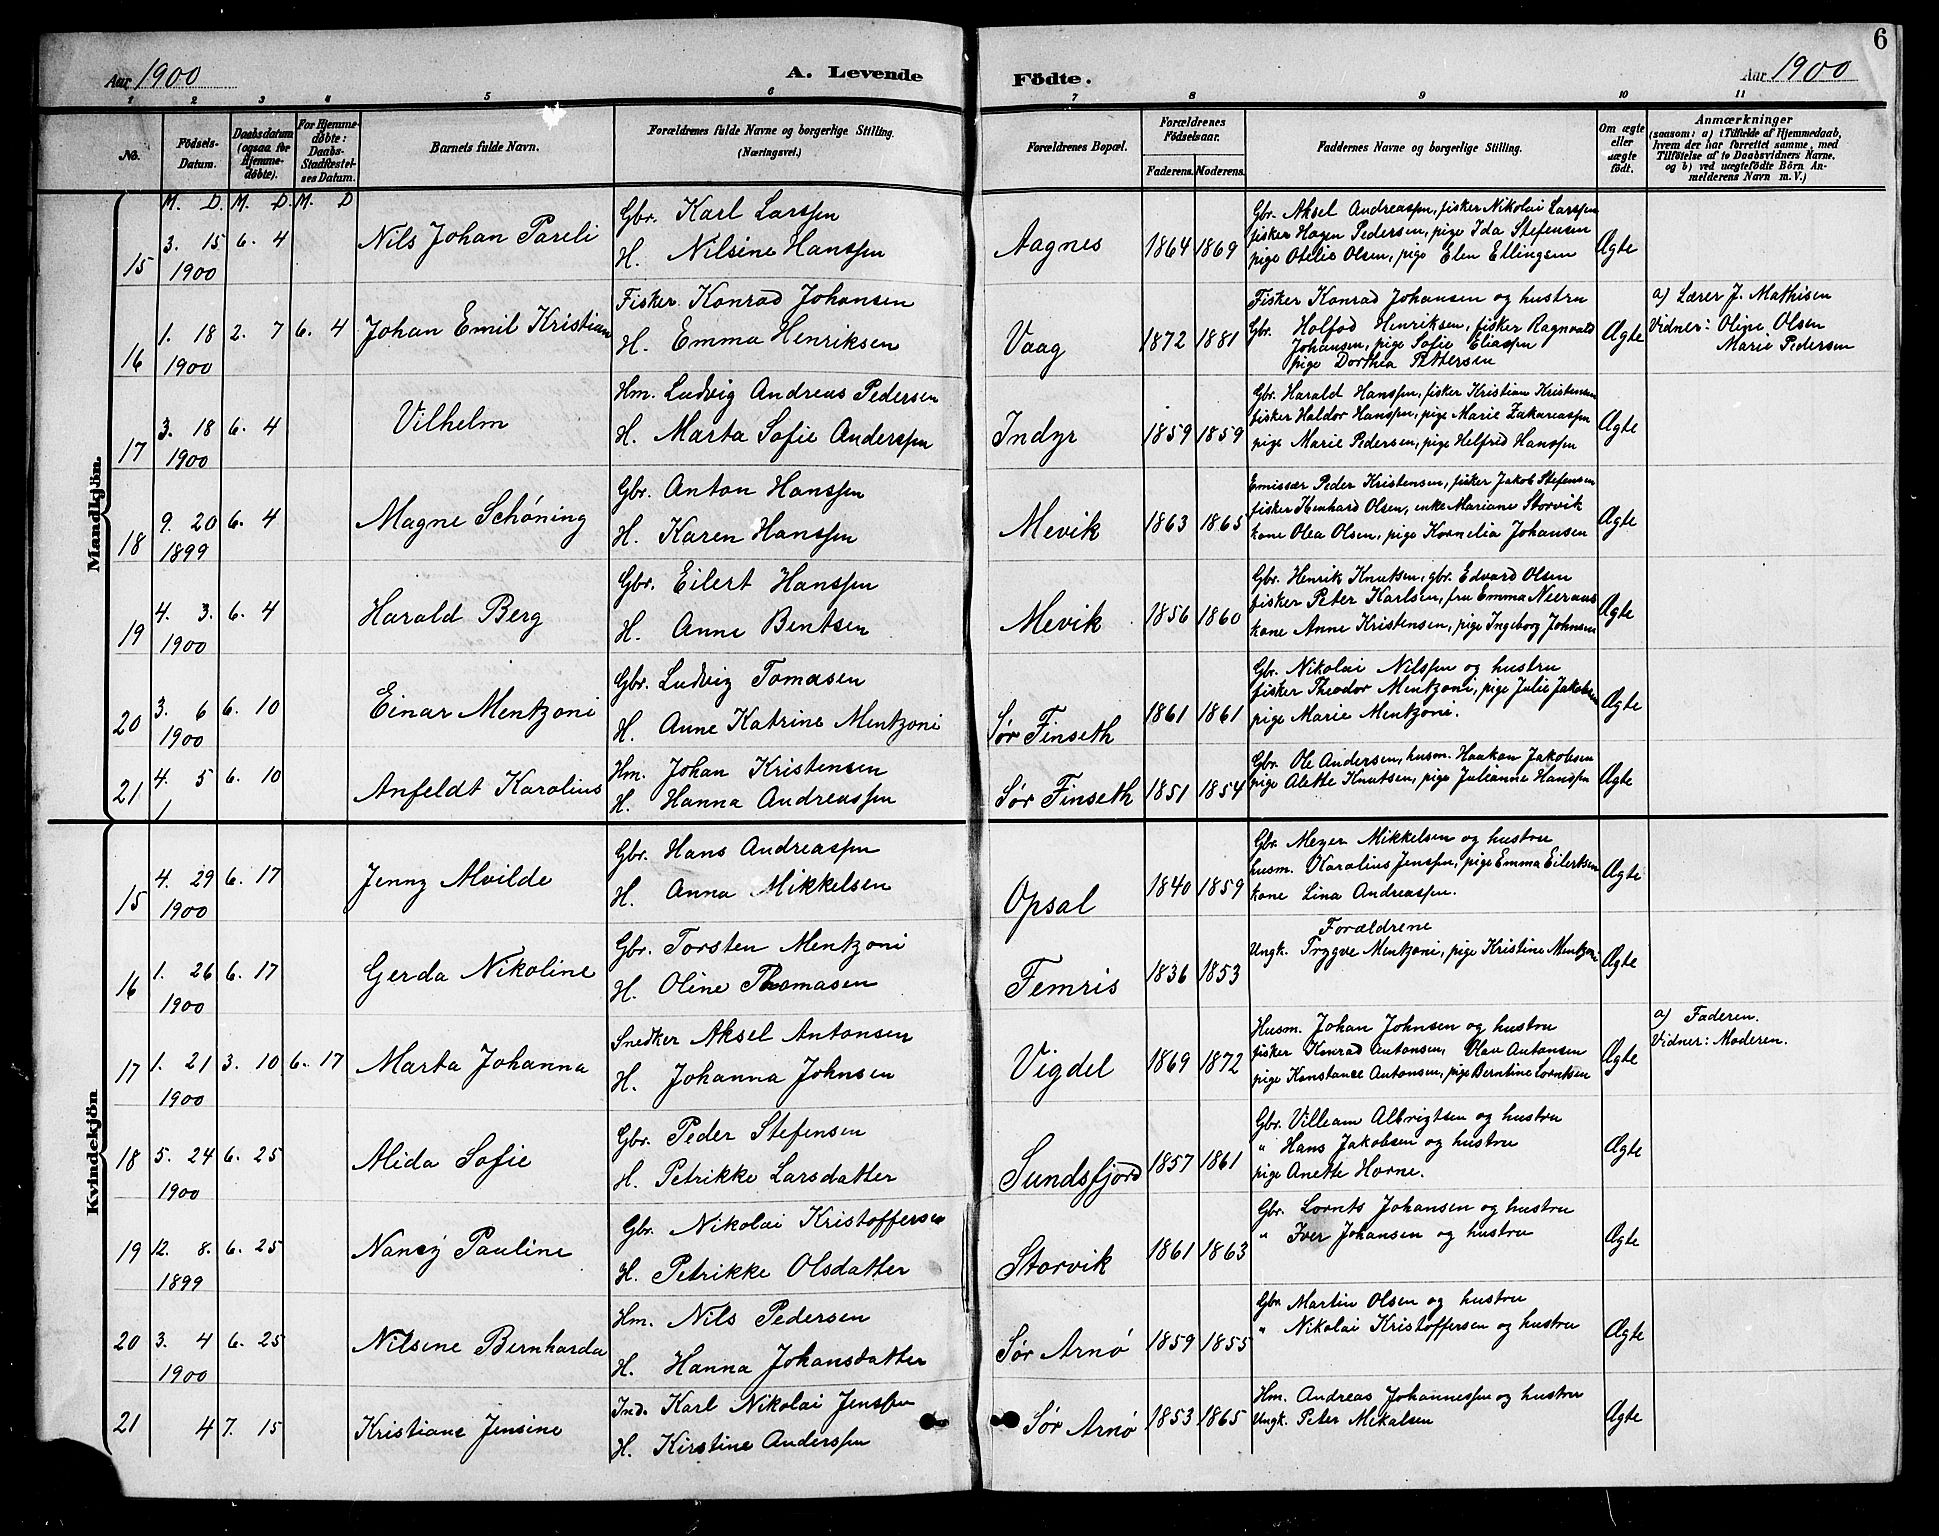 6
Aar 1900
A. Levende
Födte.
Aar 1900
1 2 3 4 5 6 7 8 9 10 11
No.
Födsels-
Datum.
Daabsdatum
(ogsaa for
Hjemme-
døbte).
For Hjemme-
döbte:
Daabs-
Stadfæstel-
ses Datum.
Barnets fulde Navn.
Forældrenes fulde Navne og borgerlige Stilling.
(Næringsvei.)
Forældrenes Bopæl.
Forældrenes
Födselsaar.
Faderens. Moderens.
Faddernes Navne og borgerlige Stilling.
Om ægte
eller
uægte
födt.
Anmærkninger
(saasom: a) i Tilfælde af Hjemmedaab,
hvem der har forrettet samme, med
Tilföielse af to Daabsvidners Navne,
og b) ved uægtefödte Börn An-
melderens Navn m. V.)
M. D. M. D. M. D
Mandkjön.
15 3. 15 6. 4
1900
Nils Johan Pareli
Gbr. Karl Larssen
H. Nilsine Hanssen
Aagnes 1864 1869
Gbr. Aksel Andreassen, fisker Nikolai Larssen
fisker Hagen Pedersen, pige Ida Stefensen
pige Otelie Olsen, pige Elen Ellingsen
Ægte
16 1. 18 2. 7 6. 4
1900
Johan Emil Kristian
Fisker. Konrad Johansen
H. Emma Henriksen
Vaag 1872 1881
Fisker Konrad Johansen og hustru
Gbr. Holfod Henriksen, fisker Ragnvald
Johansen, pige Sofie Eliassen
pige Dorthea Pettersen
Ægte
a) Lærer J. Mathisen
Vidner: Oline Olsen
Marie Pedersen
17 3. 18 6. 4
1900
Vilhelm
Hm. Ludvig Andreas Pedersen
H. Marta Sofie Anderssen
Indyr 1859 1859
Gbr. Harald Hanssen, fisker Kristian Kristensen
fisker Haldor Hanssen, pige Marie Zakariassen
pige Marie Pedersen, pige Helfred Hanssen
Ægte
18 9. 20 6. 4
1899
Magne Schóning
Gbr. Anton Hanssen
H. Karen Hanssen
Mevik 1863 1865
Emissær Peder Kristensen, fisker Jakob Stefensen
fisker Kenhard Olsen, enke Mariane Storvik
kone Olea Olsen, pige Kornelia Johansen
Ægte
19 4. 3. 6. 4
1900
Harald Berg
Gbr. Eilert Hanssen
H. Anne Bentsen
Mevik 1856 1860
Gbr. Henrik Knutsen, gbr. Edvard Olsen
fisker Peter Karlsen, fru Emma Neeraas
kone Anne Kristensen, pige Ingeborg Johnsen
Ægte
20 3. 6 6. 10
1900
Einar Mentzoni
Gbr. Ludvig Tomasen
H. Anne Katrine Mentzoni
Sør Finseth 1861 1861
Gbr. Nikolai Nilssen og hustru
fisker Theodor Mentzoni, pige Julie Jakobsen
pige Marie Mentzoni.
Ægte
21 4. 5 6. 10
Anfeldt Karolius
Hm. Johan Kristensen
H. Hanna Andreassen
Sør Finseth 1851 1854
Gbr. Ole Andersen, husm. Haakon Jakobsen
pige Alette Knutsen, pige Julianne Hanssen
Ægte
Kvindekjön
15 4. 29 6. 17
1900
Jenny Alvilde
Gbr. Hans Andreassen
H. Anna Mikkelsen
Opsal 1840 1859
Gbr. Meyer Mikkelsen og hustru
husm. Karolius Jenssen, pige Emma Eilertsen
kone Lina Andreassen.
Ægte
16 1. 26 6. 17
1900
Gerda Nikoline
Gbr. Torsten Mentzoni
H. Oline Thomasen
Femris 1836 1853
Forældrene
Ungk. Trygve Mentzoni, pige Kristine Mentzoni
Ægte
17 1. 21 3. 10 6. 17
1900
Marta Johanna
Snedker Aksel Antonsen
H. Johanna Johnsen
Vigdel 1869 1872
Husm. Johan Johnsen og hustru
fisker Konrad Antonsen, Olav Antonsen
pige Konstance Antonsen, pige Berntine Lorntsen
Ægte
a) Faderen.
Vidner: Moderen.
18 5. 24 6. 25
1900
Alida Sofie
Gbr. Peder Stefensen
H. Petrikke Larsdatter
Sundsfjord 1857 1861
Gbr. Villeam Albrigtsen og hustru
" Hans Jakobsen og hustru
pige Anette Horne.
Ægte
19 12. 8. 6. 25
1899
Nancy Pauline
Gbr. Nikolai Kristoffersen
H. Petrikke Olsdatter
Storvik 1861 1863
Gbr. Lornts Johansen og hustru
" Iver Johansen og hustru
Ægte
20 3. 4 6. 25
1900
Nilsine Bernharda
Hm. Nils Pedersen
H. Hanna Johansdatter
Sør Arnø 1859 1855
Gbr. Martin Olsen og hustru
" Nikolai Kristoffersen og hustru
Ægte
21 4 7. 15
Kristiane Jensine
Ind. Karl Nikolai Jenssen
H. Kirstine Anderssen
Sør Arnø 1853 1865
Hm. Andreas Johannessen og hustru
Ungk. Peter Mikalsen
Ægte